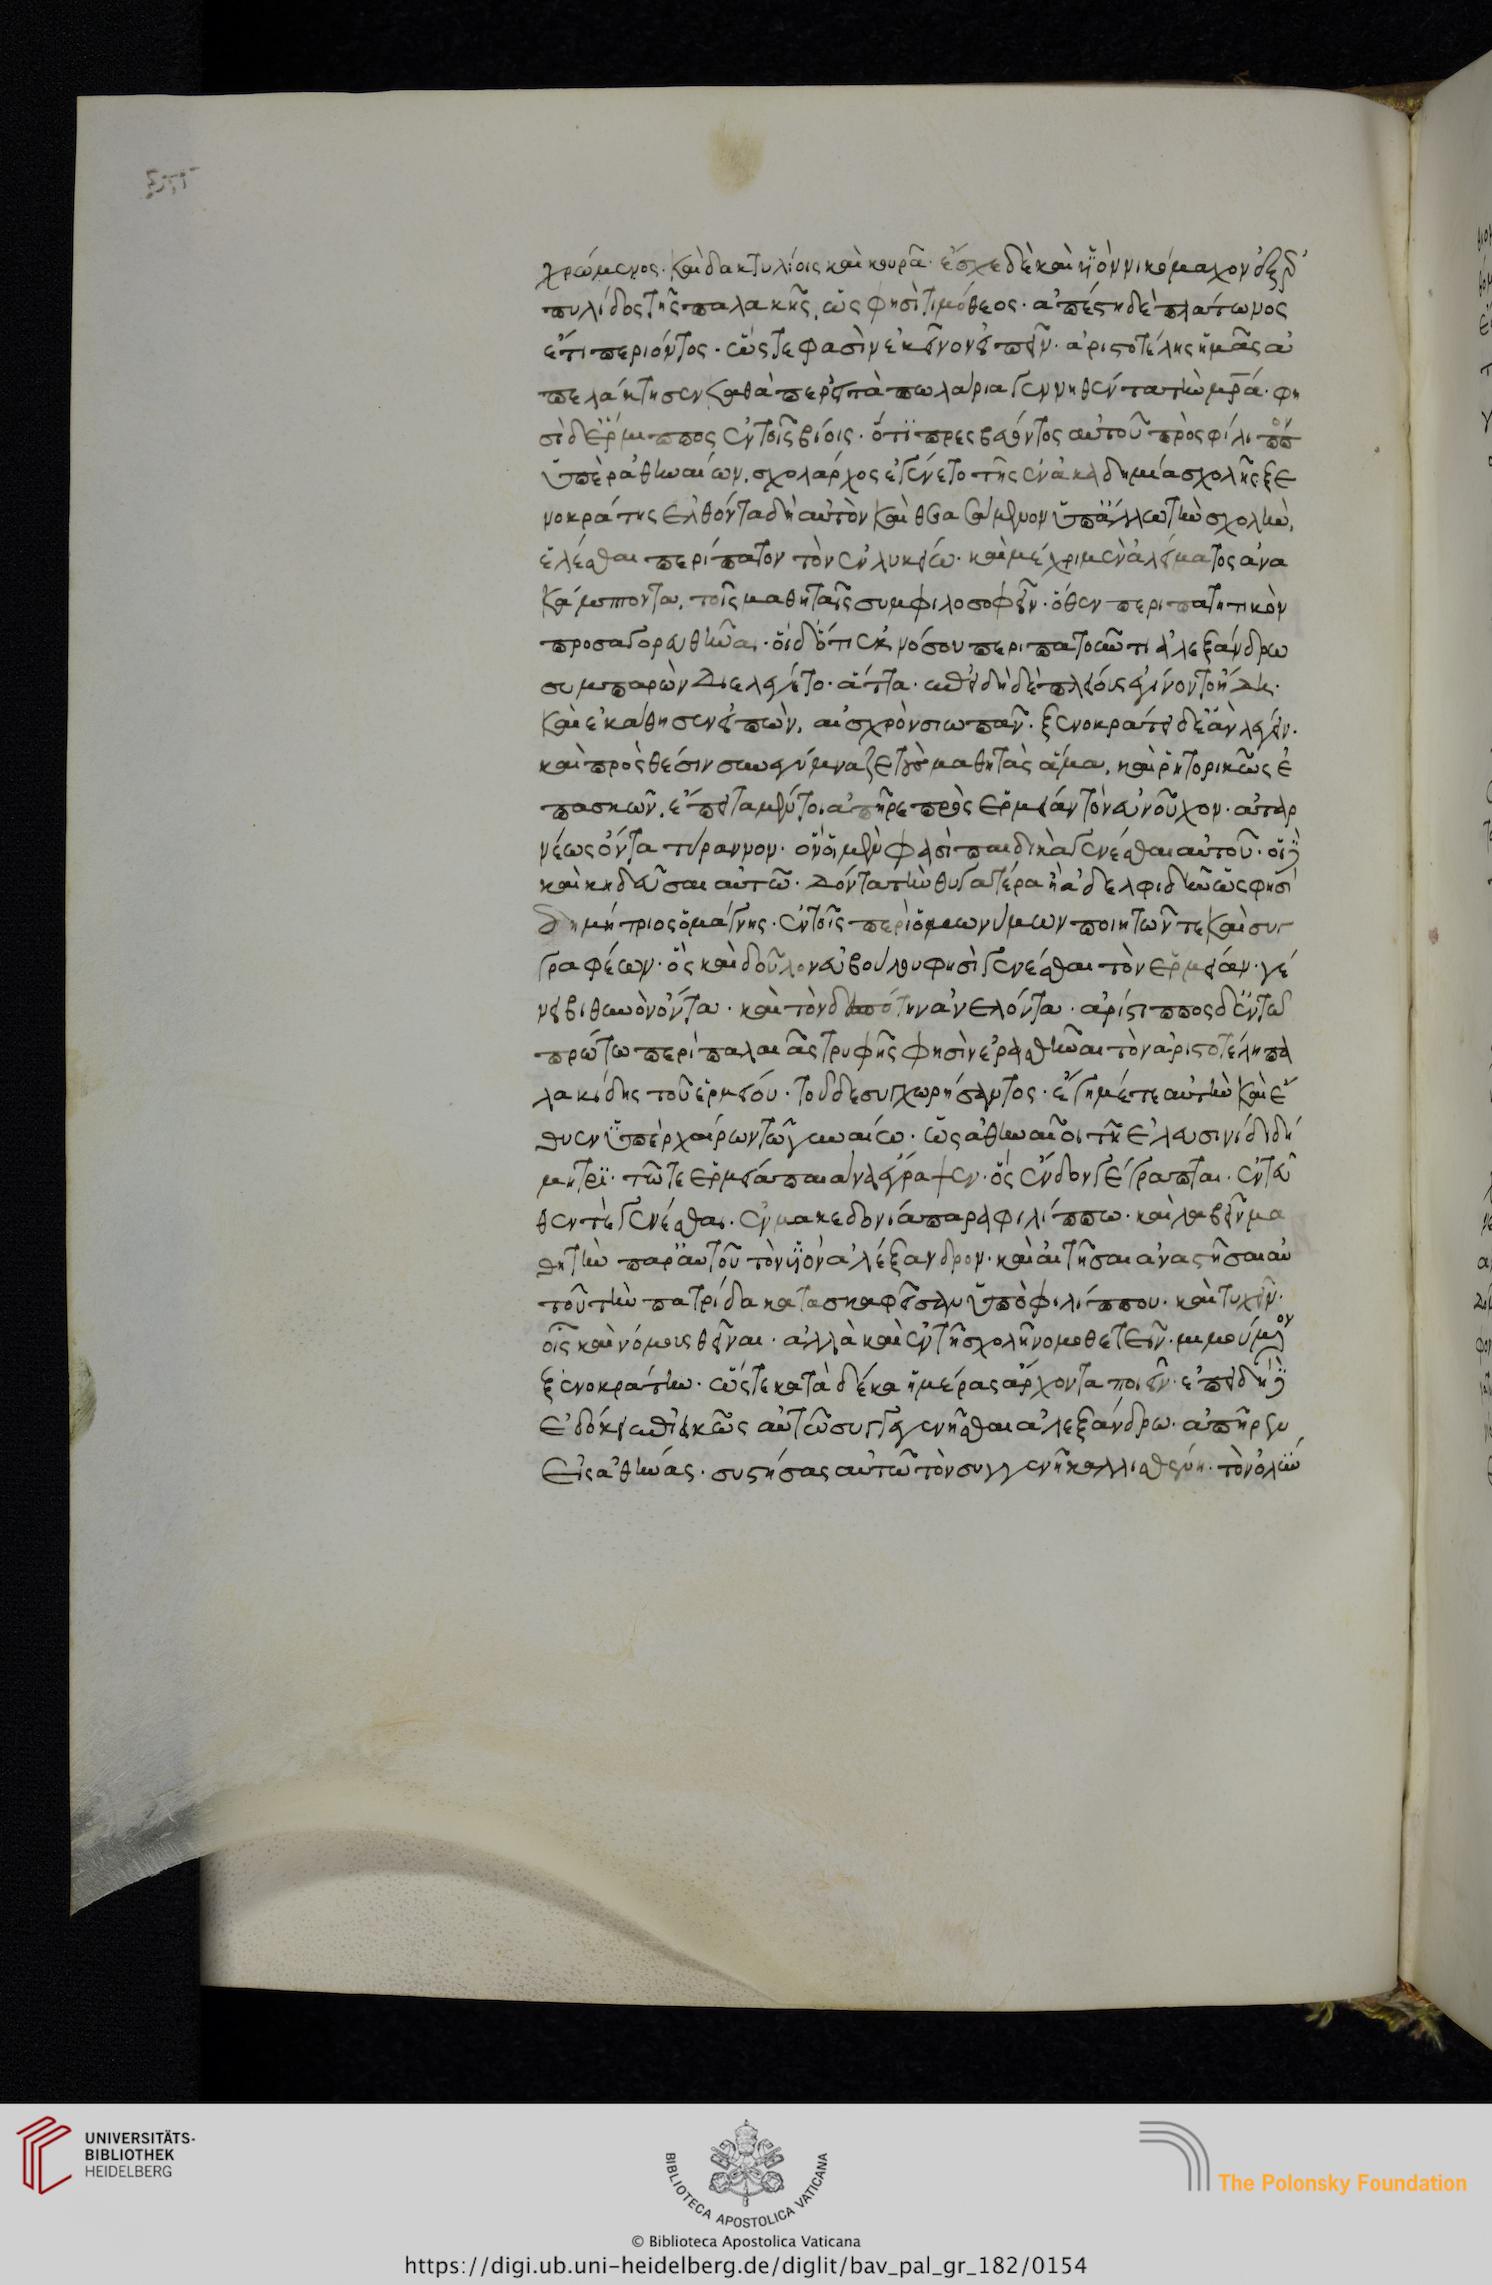 χρώμενος· καὶ δακτυλίοις καὶ κουρᾶ· ἔσχε δὲ καὶ ϋἱὸν νικόμαχον ἐξ ἑρ
πυλίδος τῆς παλακῆς, ὥς φησὶ τιμόθεος· ἀπέστη δὲ πλάτωνος
ἔτι περιόντος· ὥστε φασὶν ἐκεῖνον εἰπεῖν· ἀριστοτέλης ἡμᾶς ἀ
πελάκτησεν καθαπερεὶ τὰ πωλάρια γεννηθέντα τὴν μρα· φη
σὶ δ' ἕρμιππος ἐν τοῖς βίοις· ὅτι πρεσβεύοντος αὐτοῦ πρὸς φίλιππον
ὑπὲρ ἀθηναίων, σχολάρχος ἐγένετο τῆς ἐν ἀκαδημία σχολῆς ξε
νοκράτης ἐλθόντα δὴ αὐτὸν καὶ θεασάμενον ὑπ' ἄλλω τὴν σχολὴν,
ἑλέσθαι περίπατον τὸν ἐν λυκείω· καὶ μέχρι μὲν ἀλείματος ἀνα
κάμπτοντα, τοῖς μαθηταῖς συμφιλοσοφεῖν· ὅθεν περιπατητικὸν
προσαγορευθῆναι· οἱ δ' ὅτι ἐκ νόσου περιπατοῦντι ἀλεξάνδρω
συμπαρὼν διελέγετο· ἄττα· ἐπειδὴ δὲ πλείους ἐγίνοντο ἤδη·
καὶ ἐκάθησεν εἰπὼν, αἰσχρὸν σιωπᾶν· ξενοκράτει δ' ἐὰν λέγειν·
καὶ πρὸς θέσιν συνεγύμναζε τοὺς μαθητὰς ἅμα, καὶ ῥητορικῶς ἐ
πασκῶν, ἔπειτα μέντοι ἀπῆρε πρὸς ἑρμείαν τὸν εὐνοῦχον· ἀταρ
νέως ὄντα τύραννον· ὃν οἱ μὲν φασὶ παιδικὰ γενέσθαι αὐτοῦ· οἱ δὲ
καὶ κηδεῦσαι αὐτῶ· δόντα τὴν θυγατέρα ἢ ἀδελφιδῆν ὥς φησὶ
δημήτριος ὁ μάγνης· ἐν τοῖς περὶ ὁμωνύμων ποιητῶν τε καὶ συγ
γραφέων· ὃς καὶ δοῦλον εὐβούλου φησὶ γενέσθαι τὸν ἑρμείαν· γέ
νει βιθυνὸν ὄντα· καὶ τὸν δεσπότην ἀνελόντα· ἀρίστιππος δ' ἐν τῶ
πρώτω περὶ παλαιᾶς τρυφῆς φησὶν ἐρασθῆναι τὸν ἀριστοτέλη παλ
λακίδης τοῦ ἑρμείου· τοῦ δὲ συγχωρήσαντος· ἔγημέ τε αὐτὴν καὶ ἔ
θυεν ὑπερχαίρων τῶ γυναίω· ὡς ἀθηναῖοι τῆ ἐλευσινίδι δή
μητρϊ· τῶ τε ἑρμεία παιᾶνα ἔγραψεν· ὃς ἔνδον γέγραπται· ἐντεῦ
θεν τὲ γενέσθαι· ἐν μακεδονία παρὰ φιλίππω· καὶ λαβεῖν μα
θητὴν παρ' αὐτοῦ τὸν ϋἱὸν ἀλέξανδρον· καὶ αἰτῆσαι ἀναστῆσαι αὐ
τοῦ τὴν πατρίδα κατασκαφεῖσαν ὑπὸ φιλίππου· καὶ τυχεῖν·
οἷς καὶ νόμους θεῖναι· ἀλλὰ καὶ ἐν τῆ σχολῆ νομοθετεῖν· μιμούμενον
ξενοκράτην· ὥστε κατὰ δέκα ἡμέρας ἄρχοντα ποιεῖν· ἐπειδὴ δὲ
ἐδόκει ἐπιεικῶς αὐτῶ συγγεγενῆσθαι ἀλεξάνδρω· ἀπῆρεν
εἰς ἀθήνας· συστήσας αὐτῶ τὸν συγγενῆ καλλισθένη· τὸν ὀλύν
UNIVERSITÄTS-
BIBLIOTHEK
HEIDELBERG
BIBLIOTECA APOSTOLICA VATICANA
The Polonsky Foundation
© Biblioteca Apostolica Vaticana
https://digi.ub.uni-heidelberg.de/diglit/bav_pal_gr_182/0154